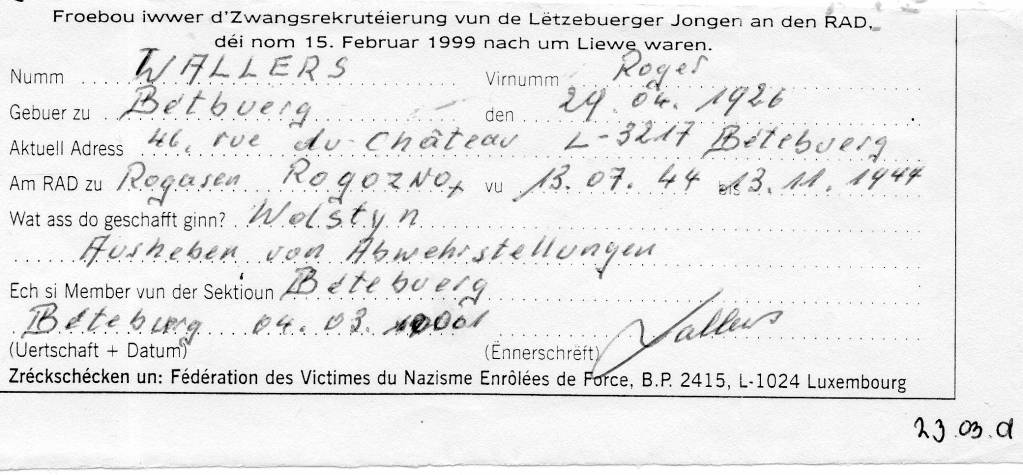 Froebou iwwer d'Zwangsrekrutéierung vun de Lëtzebuerger Jongen an den RAD,
déi nom 15. Februar 1999 nach um Liewe waren.
Numm WALLERS Virnumm Roger
Gebuer zu Betbuerg den 29.04.1926
Aktuell Adress 46, rue du Château L-3217 Bétebuerg
Am RAD zu Rogasen Rogozno, vu 13.07.44 bis 13.11.1944
Wat ass do geschafft ginn? Wolstyn
Ausheben von Abwehrstellungen
Ech si Member vun der Sektioun Bétebuerg
Béteburg 04.03.
(Uertschaft + Datum) (Ënnerschrëft) Wallers
Zréckschécken un: Fédération des Victimes du Nazisme Enrôlées de Force, B.P. 2415, L-1024 Luxembourg
23.03.01